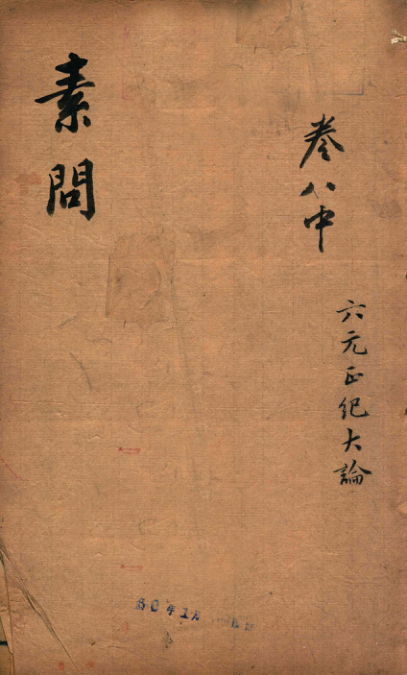 卷八中
六元正纪大論
素問